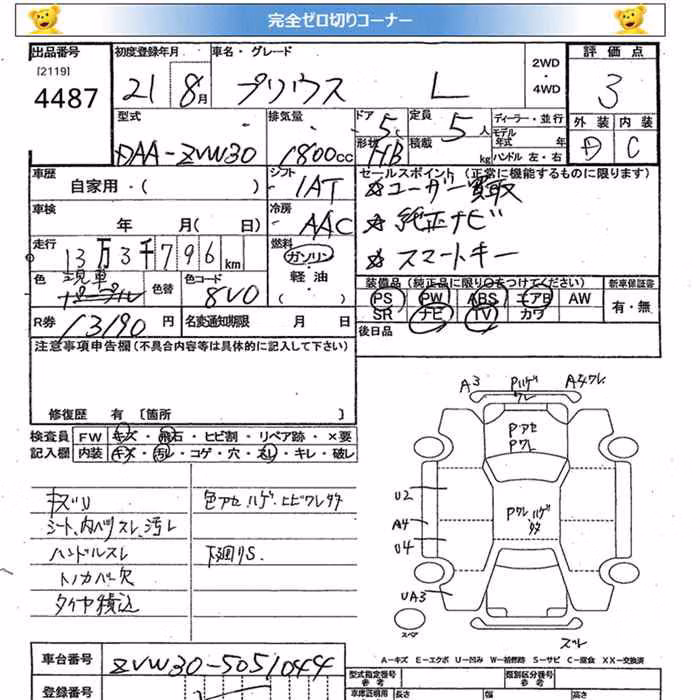 完全ゼロ切りコーナー
出品番号
[2119]
4487
初度登録年月
21 8月
車名・グレード
プリウス L
2WD
・
4WD
評価点
3
外装 内装
D C
型式
DAA-ZVW30
排気量
1800cc
ドア
5
形状
HB
定員
5人
積載
kg
ディーラー・並行
モデル
年式 年
ハンドル 左・右
車歴
自家用・( )
シフト
IAT
セールスポイント(正常に機能するものに限ります)
☆ユーザー買取
☆純正ナビ
☆スマートキー
車検
年 月( 日)
冷房
AAC
走行
13万3千796km
燃料
ガソリン
・
軽油
( )
色
現車
パープル
色替
色コード
8V0
装備品(純正品に限り○をつけてください)
PS PW ABS エアB AW
SR ナビ TV カワ
新車保証書
有・無
R券 13190円
名変通知期限 月 日
後日品
注意事項申告欄(不具合内容等は具体的に記入して下さい)
修復歴 有 〔箇所 〕
検査員 FW キズ・飛石・ヒビ割・リペア跡・×要
記入欄 内装 キズ・汚れ・コゲ・穴・スレ・キレ・破レ
キズU
シート、内ベリスレ、汚レ
ハンドルスレ
トノカバー欠
タイヤ積込
色アセ、ハゲ、ヒビワレ多々
下廻りS
A3
Pハゲ
ワレ
A4ワレ
Pアセ
Pワレ
U2
A4
U4
Pワレハゲ
多
UA3
スペア
スレ
A-キズ E-エクボ U-凹み W-補修跡 S-サビ C-腐食 XX-交換済
車台番号
ZVW30-5051044
登録番号
型式指定番号
参考
類別区分番号
参考
車庫証明用
長さ
幅
高さ